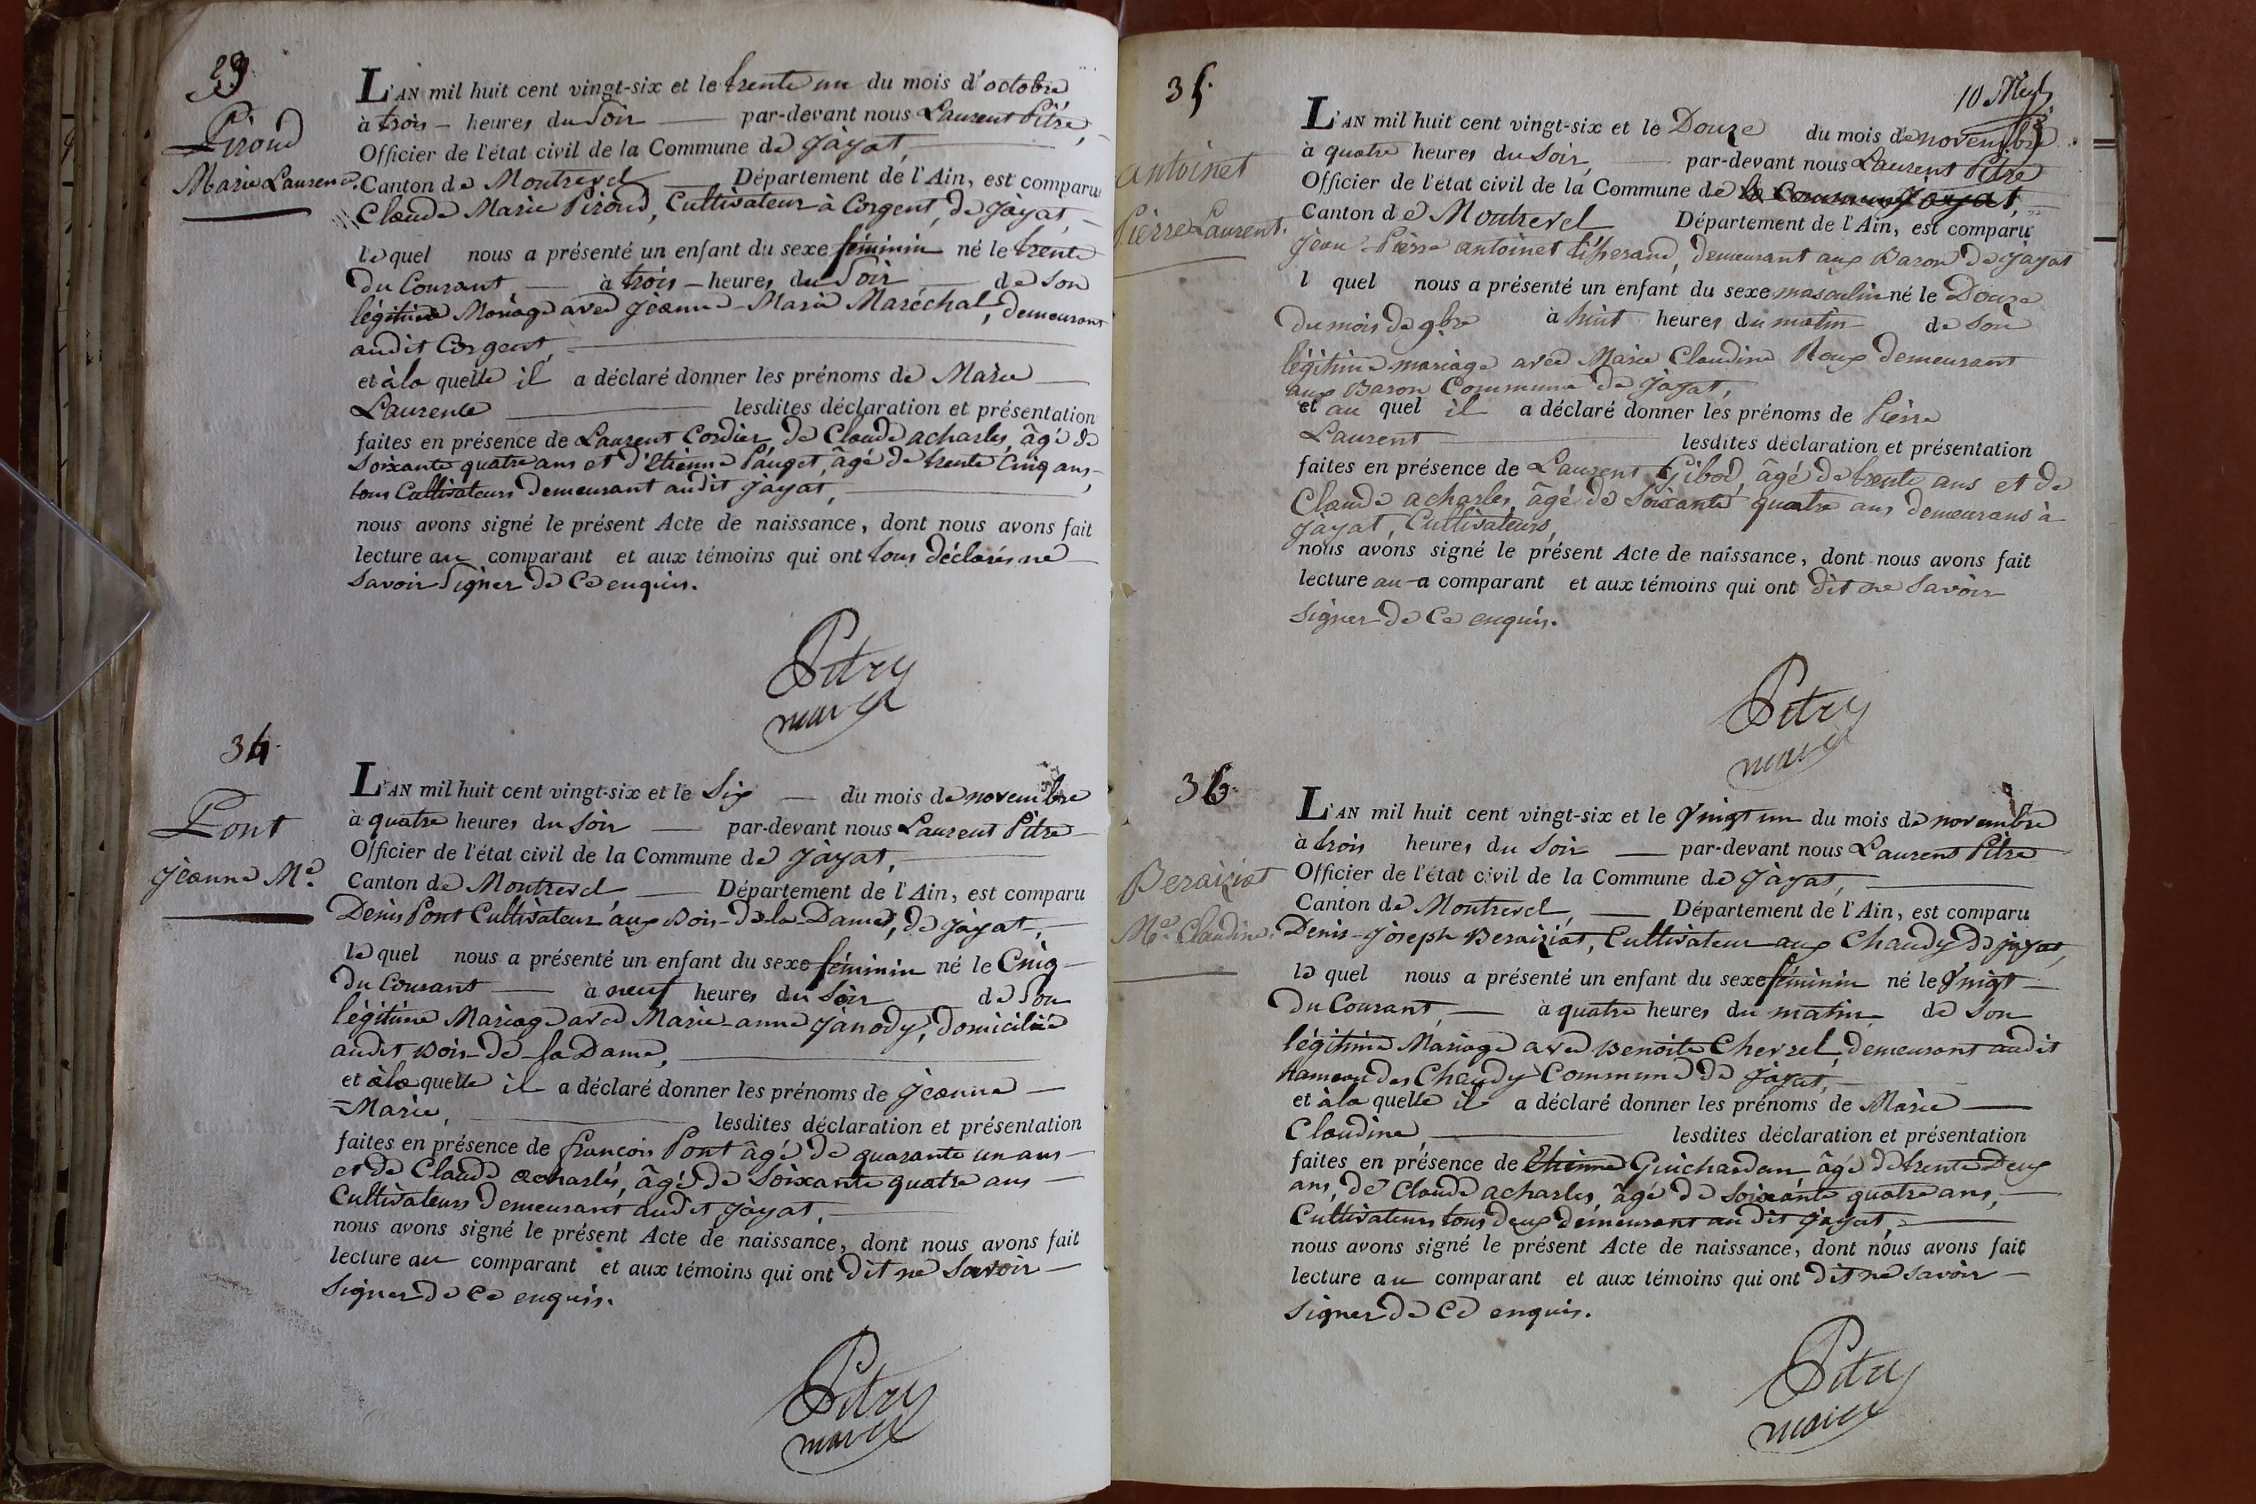 33
Piroud
Marie Laurence.
L'AN mil huit cent vingt-six et le trente un du mois d'octobre
à trois heures du Soir par-devant nous Laurent Pitre,
Officier de l'état civil de la Commune de Jayat,
Canton de Montrevel Département de l'Ain, est comparu
Claude Marie Piroud, Cultivateur à Corgent, de Jayat,
lequel nous a présenté un enfant du sexe féminin né le trente
du Courant à trois heures du Soir de Son
légitime Mariage avec Jeanne-Marie Maréchal, demeurant
audit Corgent,
et à la quelle il a déclaré donner les prénoms de Marie
Laurente lesdites déclaration et présentation
faites en présence de Laurent Cordier, de Claude acharles, âgé de
Soixante quatre ans et d'Etienne Pauget, âgé de trente Cinq ans,
tous Cultivateurs demeurant audit Jayat,
nous avons signé le présent Acte de naissance, dont nous avons fait
lecture au comparant et aux témoins qui ont tous déclarés ne
Savoir Signer de Ce enquis.
Pitre
maire
34.
Pont
Jeanne Me.
L'AN mil huit cent vingt-six et le Six du mois de novembre
à quatre heures du Soir par-devant nous Laurent Pitre
Officier de l'état civil de la Commune de Jayat,
Canton de Montrevel Département de l'Ain, est comparu
Denis Pont Cultivateur aux Bois-de-la-Dame, de Jayat,
le quel nous a présenté un enfant du sexe féminin né le Cinq
du Courant à neuf heures du Soir de Son
légitime Mariage avec Marie-anne Janody, domiciliée
audit Bois-de-la Dame,
et à la quelle il a déclaré donner les prénoms de Jeanne
=Marie, lesdites déclaration et présentation
faites en présence de françois Pont âgé de quarante un ans
et de Claude acharles, âgé de Soixante quatre ans
Cultivateurs demeurant audit Jayat,
nous avons signé le présent Acte de naissance, dont nous avons fait
lecture au comparant et aux témoins qui ont dit ne Savoir
Signer de Ce enquis.
Pitre
maire
35.
10
antoinet
Pierre Laurent.
L'AN mil huit cent vingt-six et le Douze du mois de novembre
à quatre heures du Soir, par-devant nous Laurent Pitre
Officier de l'état civil de la Commune de la Commune Jayat,
Canton de Montrevel Département de l'Ain, est comparu
Jean-Pierre antoinet tisserand, demeurant aux Baron de Jayat
l quel nous a présenté un enfant du sexe masculin né le Douze
du mois de 9bre à huit heures du matin de Son
légitime mariage avec Marie Claudine Roux demeurant
aux Baron Commune de Jayat,
et au quel il a déclaré donner les prénoms de Pierre
Laurent lesdites déclaration et présentation
faites en présence de Laurent Gibod, âgé de trente ans et de
Claude acharles, âgé de Soixante quatre ans demeurans à
Jayat, Cultivateurs,
nous avons signé le présent Acte de naissance, dont nous avons fait
lecture au a comparant et aux témoins qui ont dit ne Savoir
Signer de Ce enquis.
Pitre
maire
36.
Beraiziat
Me. Claudine.
L'AN mil huit cent vingt-six et le Vingt un du mois de novembre
à trois heures du Soir par-devant nous Laurent Pitre
Officier de l'état civil de la Commune de Jayat,
Canton de Montrevel, Département de l'Ain, est comparu
Denis-Joseph Beraiziat, Cultivateur aux Chaudy de jayat,
le quel nous a présenté un enfant du sexe féminin né le Vingt
du Courant, à quatre heures du matin de Son
légitime Mariage avec Benoite Chevrel, demeurant audit
hameau des Chaudy Commune de Jayat,
et à la quelle il a déclaré donner les prénoms de Marie
Claudine, lesdites déclaration et présentation
faites en présence de Etienne Guichardan âgé de trente Deux
ans, de Claude acharles, âgé de soixante quatre ans,
Cultivateurs tous deux demeurant au dit Jayat,
nous avons signé le présent Acte de naissance, dont nous avons fait
lecture au comparant et aux témoins qui ont dit ne Savoir
Signer de Ce enquis.
Pitre
maire